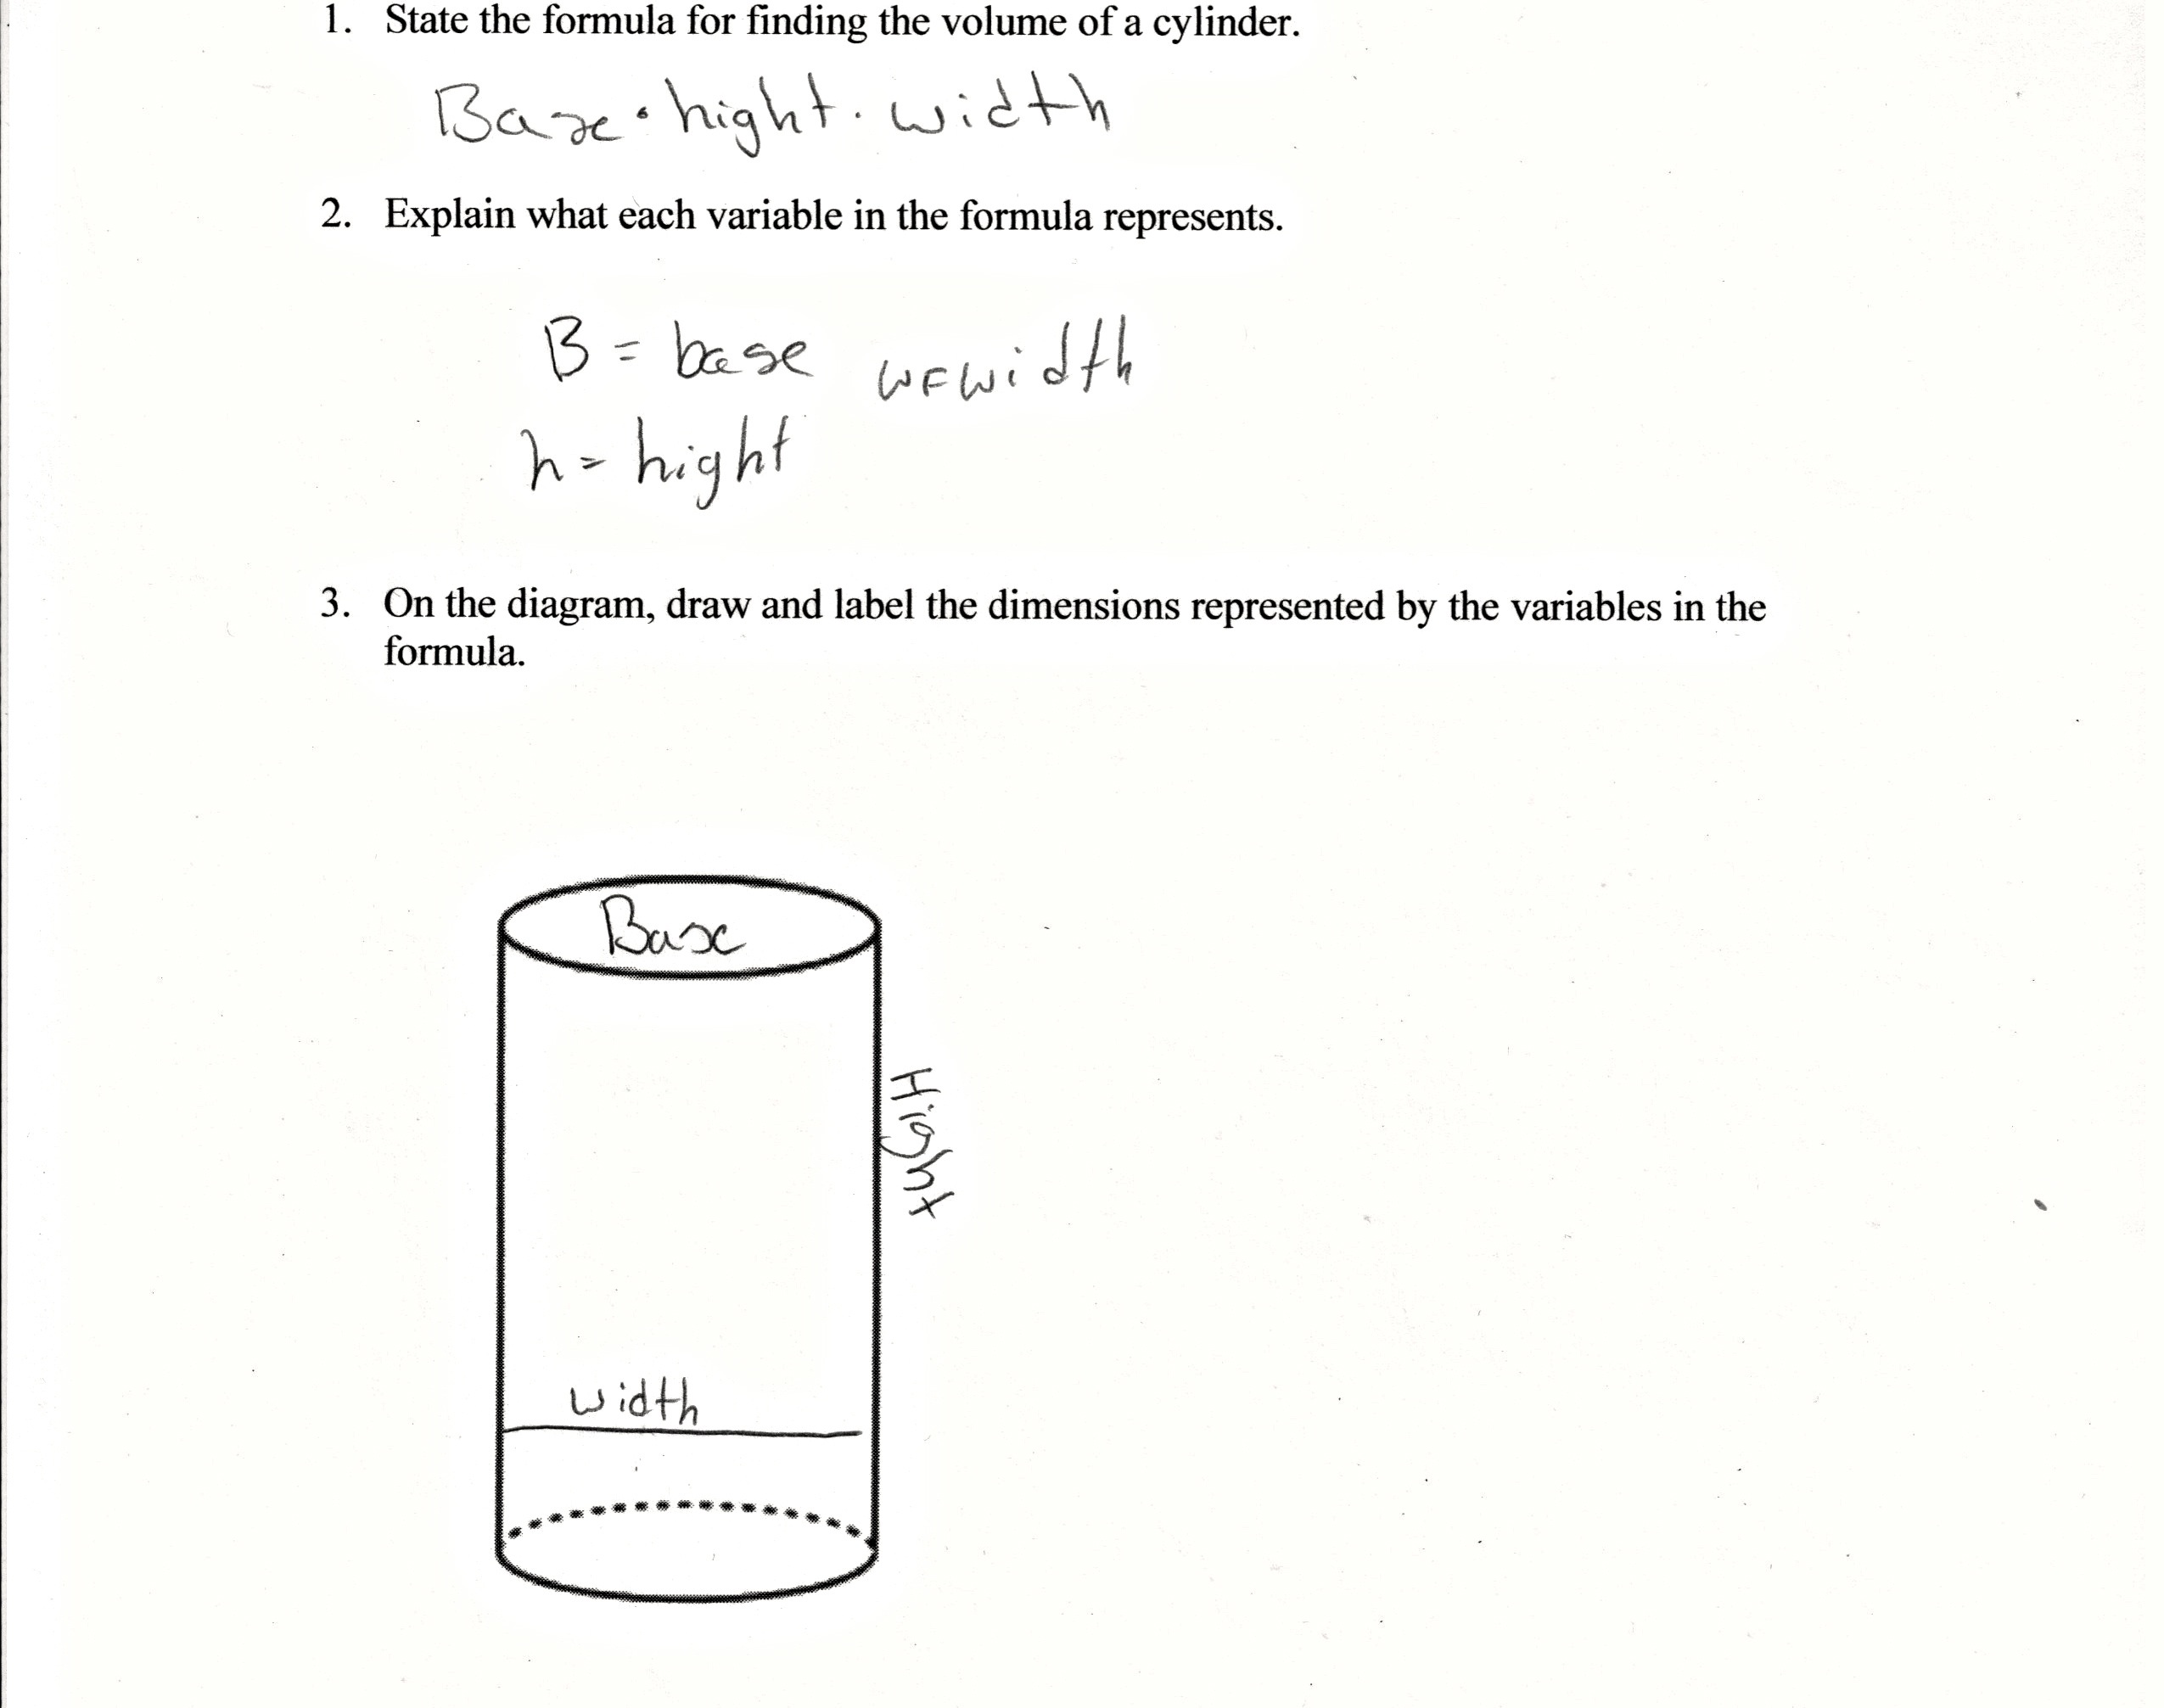 1. State the formula for finding the volume of a cylinder.
Base • hight • width
2. Explain what each variable in the formula represents.
B = base w = width
h = hight
3. On the diagram, draw and label the dimensions represented by the variables in the
formula.
Base
Hight
width